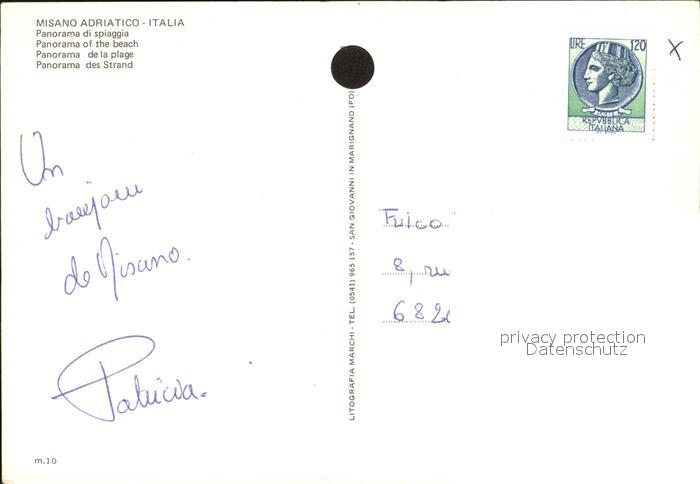 MISANO ADRIATICO - ITALIA
Panorama di spiaggia
Panorama of the beach
Panorama de la plage
Panorama des Strand
LIRE 120
POSTE
REPVBBLICA
ITALIANA
x
Un
bonjour
de Misano.
Patricia.
LITOGRAFIA MARCHI - TEL. (0541) 965 157 - SAN GIOVANNI IN MARIGNANO (FO)
Fulco
8, ru
682
privacy protection
Datenschutz
m.10